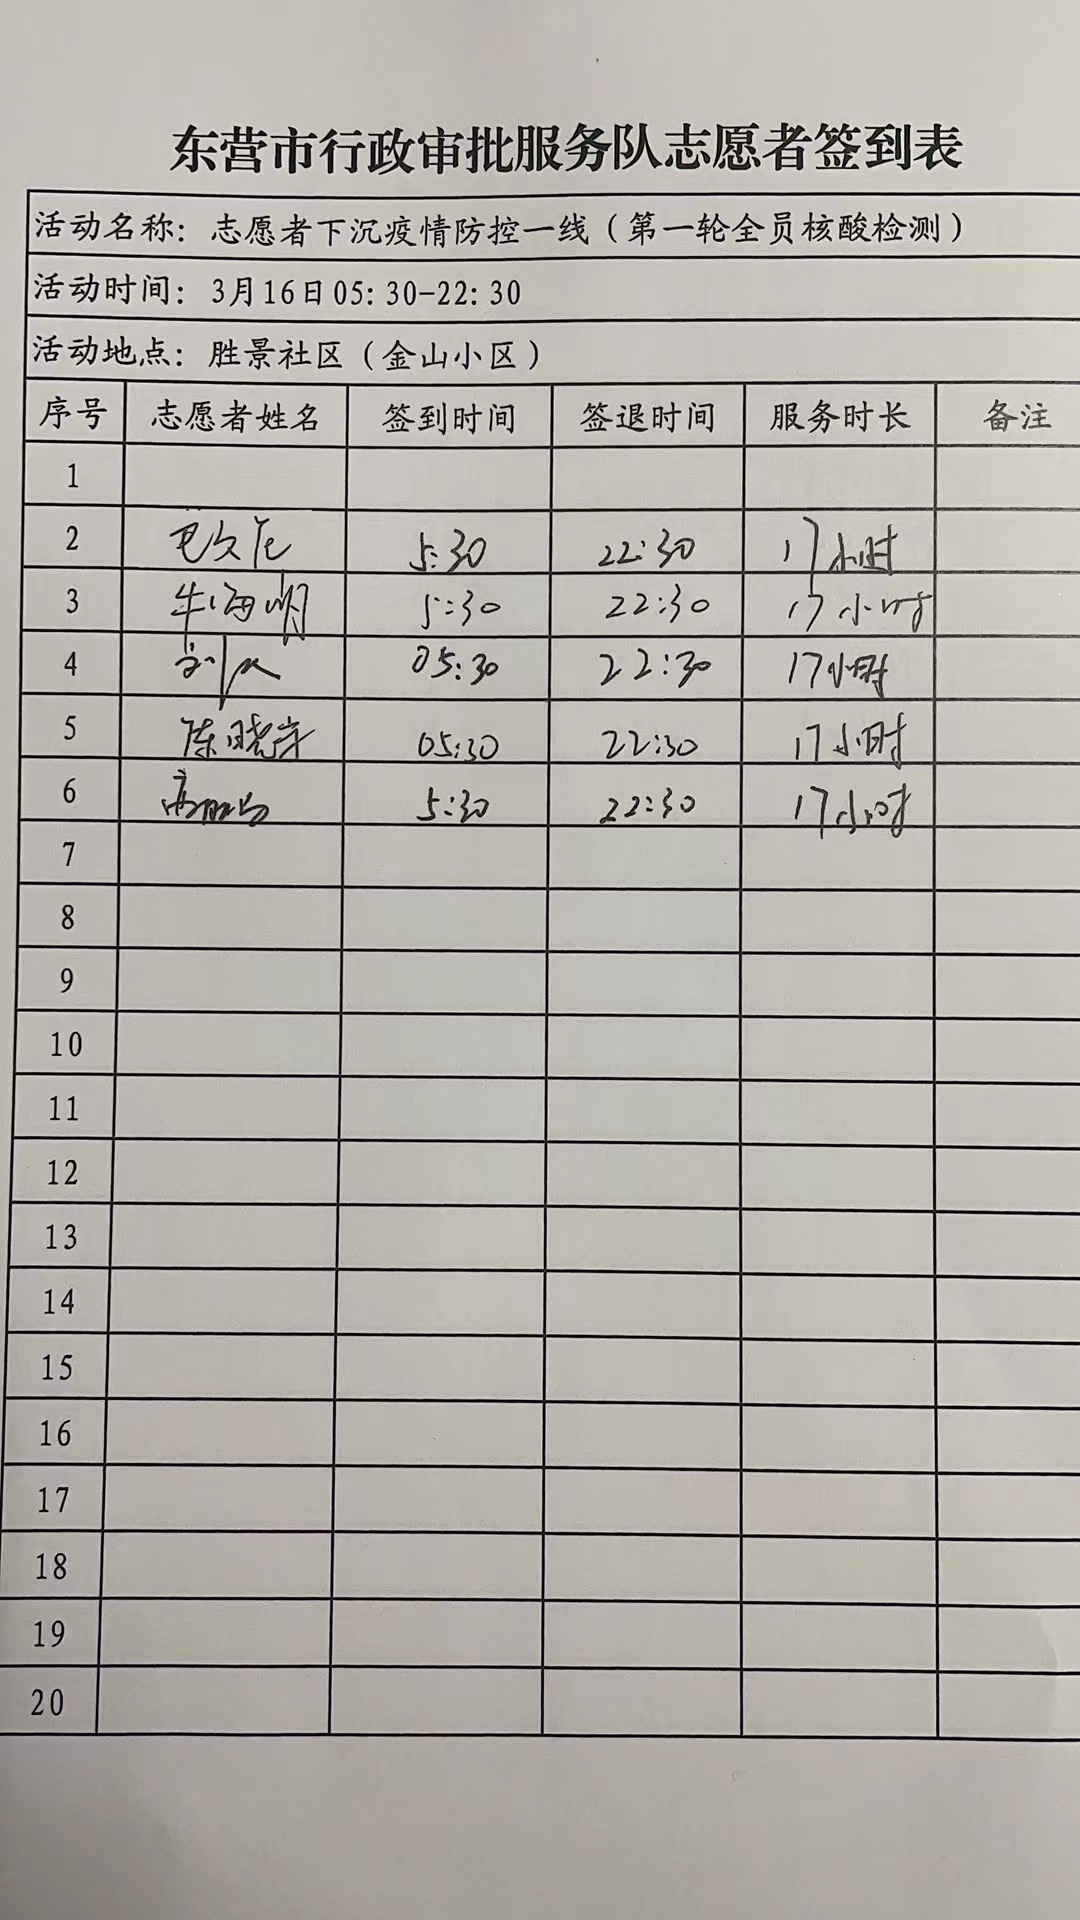 东营市行政审批服务队志愿者签到表
活动名称：志愿者下沉疫情防控一线（第一轮全员核酸检测）
活动时间：3月16日05:30-22:30
活动地点：胜景社区（金山小区）
序号 志愿者姓名 签到时间 签退时间 服务时长 备注
1
2 5:30 22:30 17小时
3 牛海明 5:30 22:30 17小时
4 05:30 22:30 17小时
5 陈晓宇 05:30 22:30 17小时
6 5:30 22:30 17小时
7
8
9
10
11
12
13
14
15
16
17
18
19
20